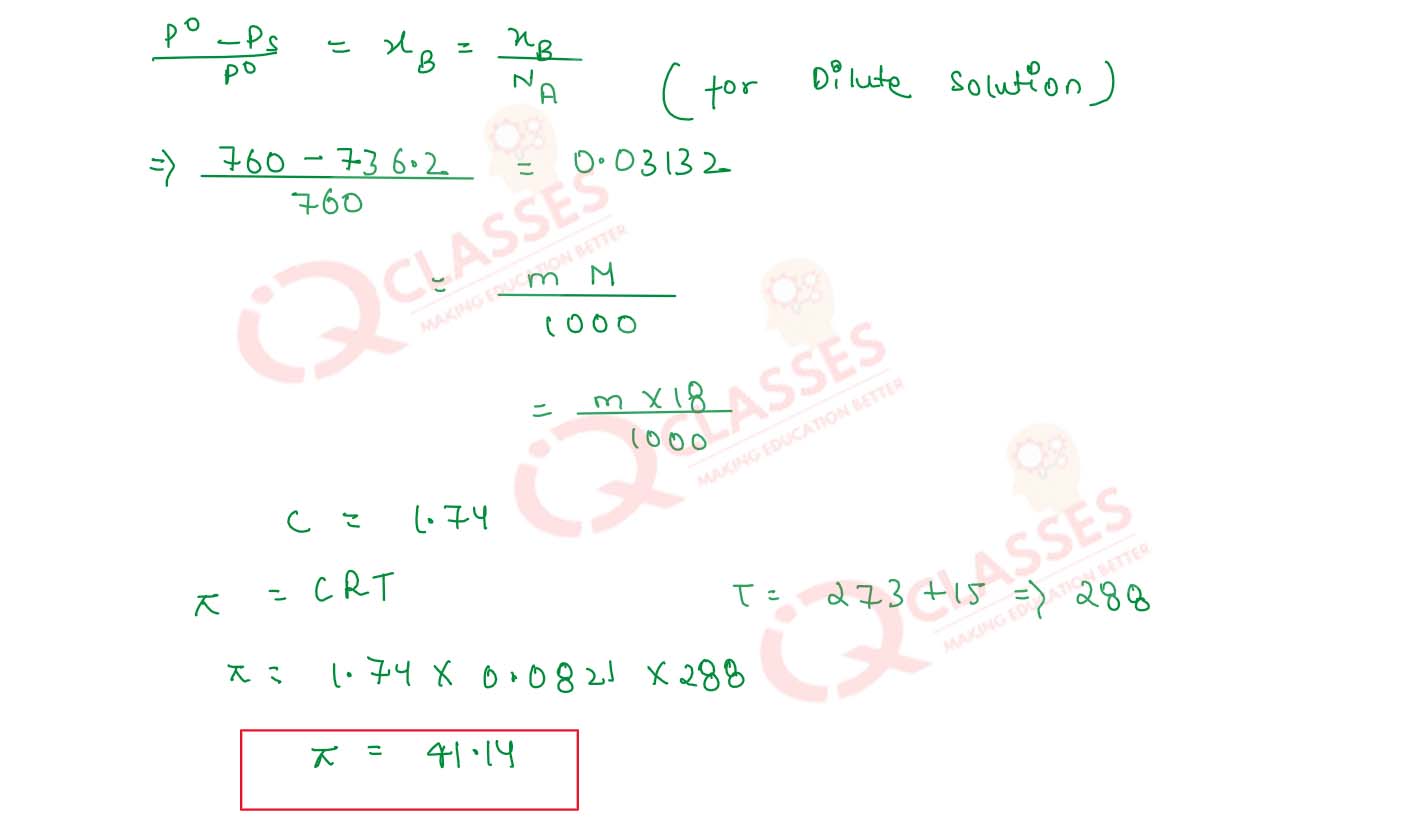 P⁰ - Ps / P⁰ = xB = nB / NA (for Dilute solution)
=> 760 - 736.2 / 760 = 0.03132
= m M / 1000
= m x 18 / 1000
C = 1.74
π = CRT T = 273 + 15 => 288
π = 1.74 x 0.0821 x 288
π = 41.14
iQ CLASSES
MAKING EDUCATION BETTER
iQ CLASSES
MAKING EDUCATION BETTER
iQ CLASSES
MAKING EDUCATION BETTER